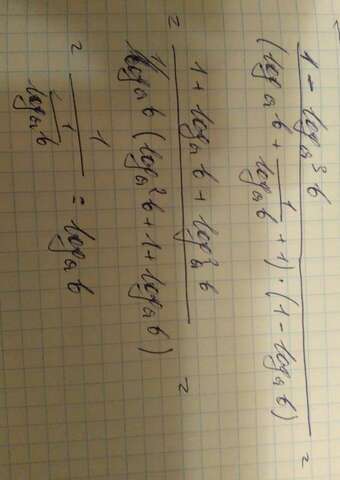 1 - logₐ³ b
(logₐ b + 1/logₐ b + 1) · (1 - logₐ b) =
= 1 + logₐ b + logₐ² b =
1/logₐ b (logₐ² b + 1 + logₐ b)
= 1
1/logₐ b = logₐ b